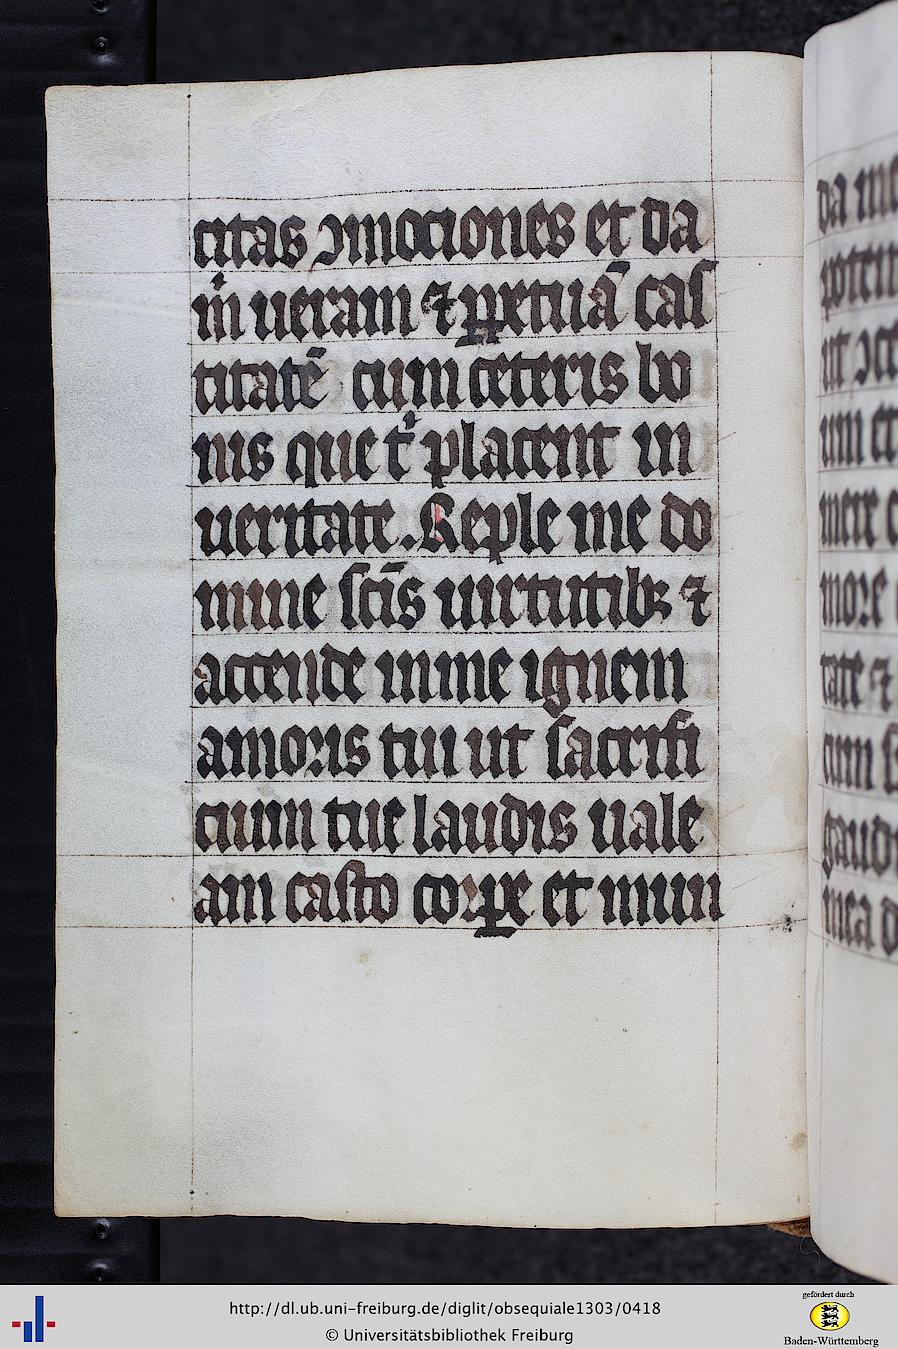 citas ꝯmociones et da
m̄ ueram ⁊ ꝑpetuā caſ
titatē cum ceteris bo
nis que t̄ placent in
ueritate. Reple me do
mine ſcīs uirtutibꝫ ⁊
accende in me ignem
amoꝛis tui ut ſacrifi
cium tue laudis uale
am caſto coꝛꝑe et mun
da me
ut ꝯce
um et
mere c
moꝛe
tate ⁊
cum ſ
gaudi
mea d
http://dl.ub.uni-freiburg.de/diglit/obsequiale1303/0418
© Universitätsbibliothek Freiburg
gefördert durch
Baden-Württemberg